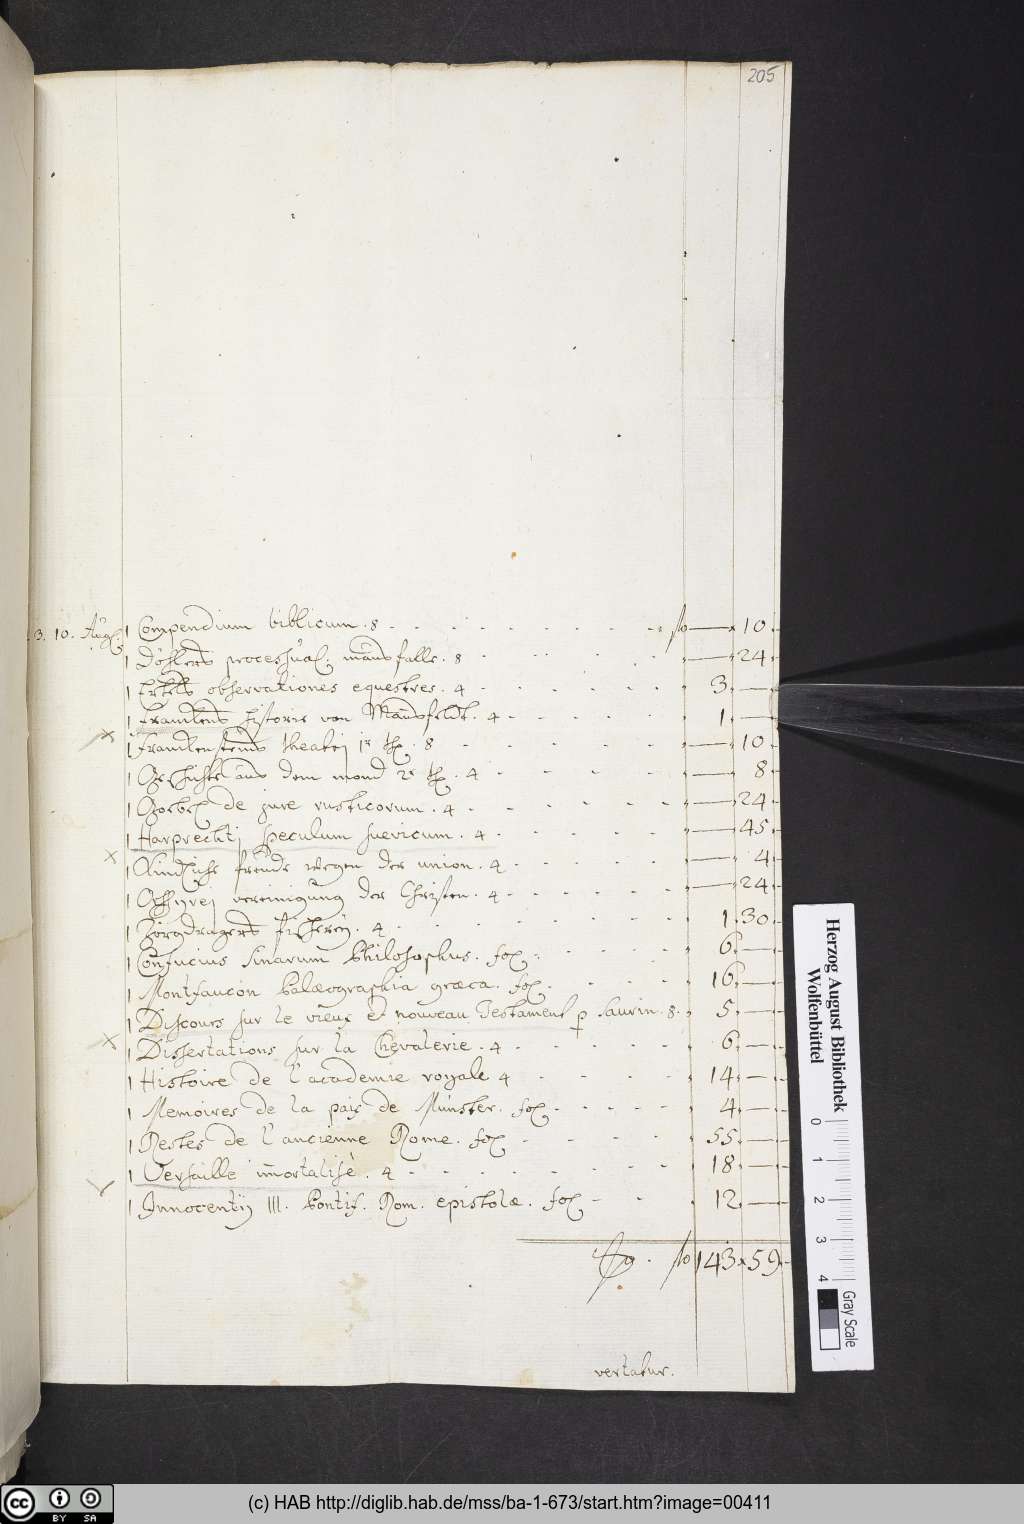 205
3. 10. Aug. 1 Compendium biblicum. 8 fl — x 10
1 Döhlers processual. mausfalle. 8 — 24
1 Ertels observationes equestres. 4 3. —
1 Franckens historie von Mansfeldt. 4 1. —
1 Franckensteins theatrj 1r th. 8 — 10
1 Geschichte aus dem mond 2r th. 4 — 8
1 Goebel de jure rusticorum. 4 — 24
1 Harprechtj speculum suevicum. 4 — 45
1 freude wegen der union. 4 — 4
1 vereinigung der Christen. 4 — 24
1 Zorgdragers fischerey. 4 1. 30
1 Confucius Sinarum Philosophus. fol. 6. —
1 Montfaucon Palæographia græca. fol. 16 —
1 Discours sur le vieux et nouveau Testament p Saurin. 8. 5. —
1 Dissertations sur la Chevalerie. 4 6. —
1 Histoire de l'academie royale 4 14. —
1 Memoires de la paix de Münster. fol. 4. —
1 Restes de l'ancienne Rome. fol 55. —
1 Versaille immortalisé. 4 18. —
1 Innocentij III. Pontif. Rom. epistolæ. fol 12. —
fl 143 x 59
vertatur.
Herzog August Bibliothek
Wolfenbüttel
0 1 2 3 4
Gray Scale
cc BY SA
(c) HAB http://diglib.hab.de/mss/ba-1-673/start.htm?image=00411